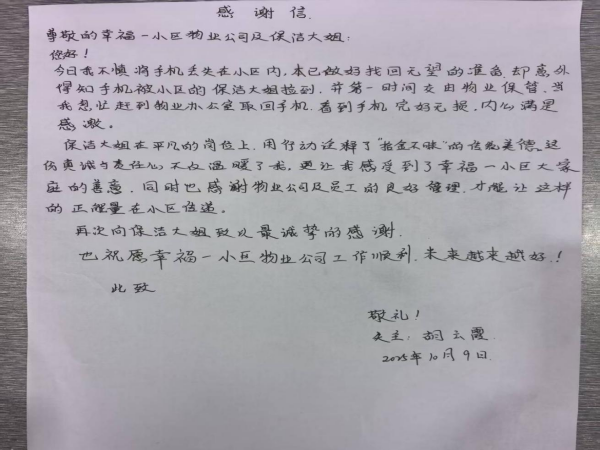 感谢信.
尊敬的幸福一小区物业公司及保洁大姐:
您好!
今日我不慎将手机丢失在小区内,本已做好找回无望的准备,却意外
得知手机被小区的保洁大姐捡到,并第一时间交由物业保管,当
我急忙赶到物业办公室取回手机,看到手机完好无损,内心满是
感激。
保洁大姐在平凡的岗位上,用行动诠释了"拾金不昧"的传统美德。这
份真诚与责任心不仅温暖了我,更让我感受到了幸福一小区大家
庭的善意,同时也感谢物业公司及员工的良好管理,才能让这样
的正能量在小区传递。
再次向保洁大姐致以最诚挚的感谢.
也祝愿幸福一小区物业公司工作顺利,未来越来越好.!
此致
敬礼!
失主:胡云霞.
2025年10月9日.